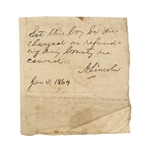 Let this boy be dis-
charged on refund-
ing any bounty re-
ceived.
A. Lincoln
Jan. 3, 1864